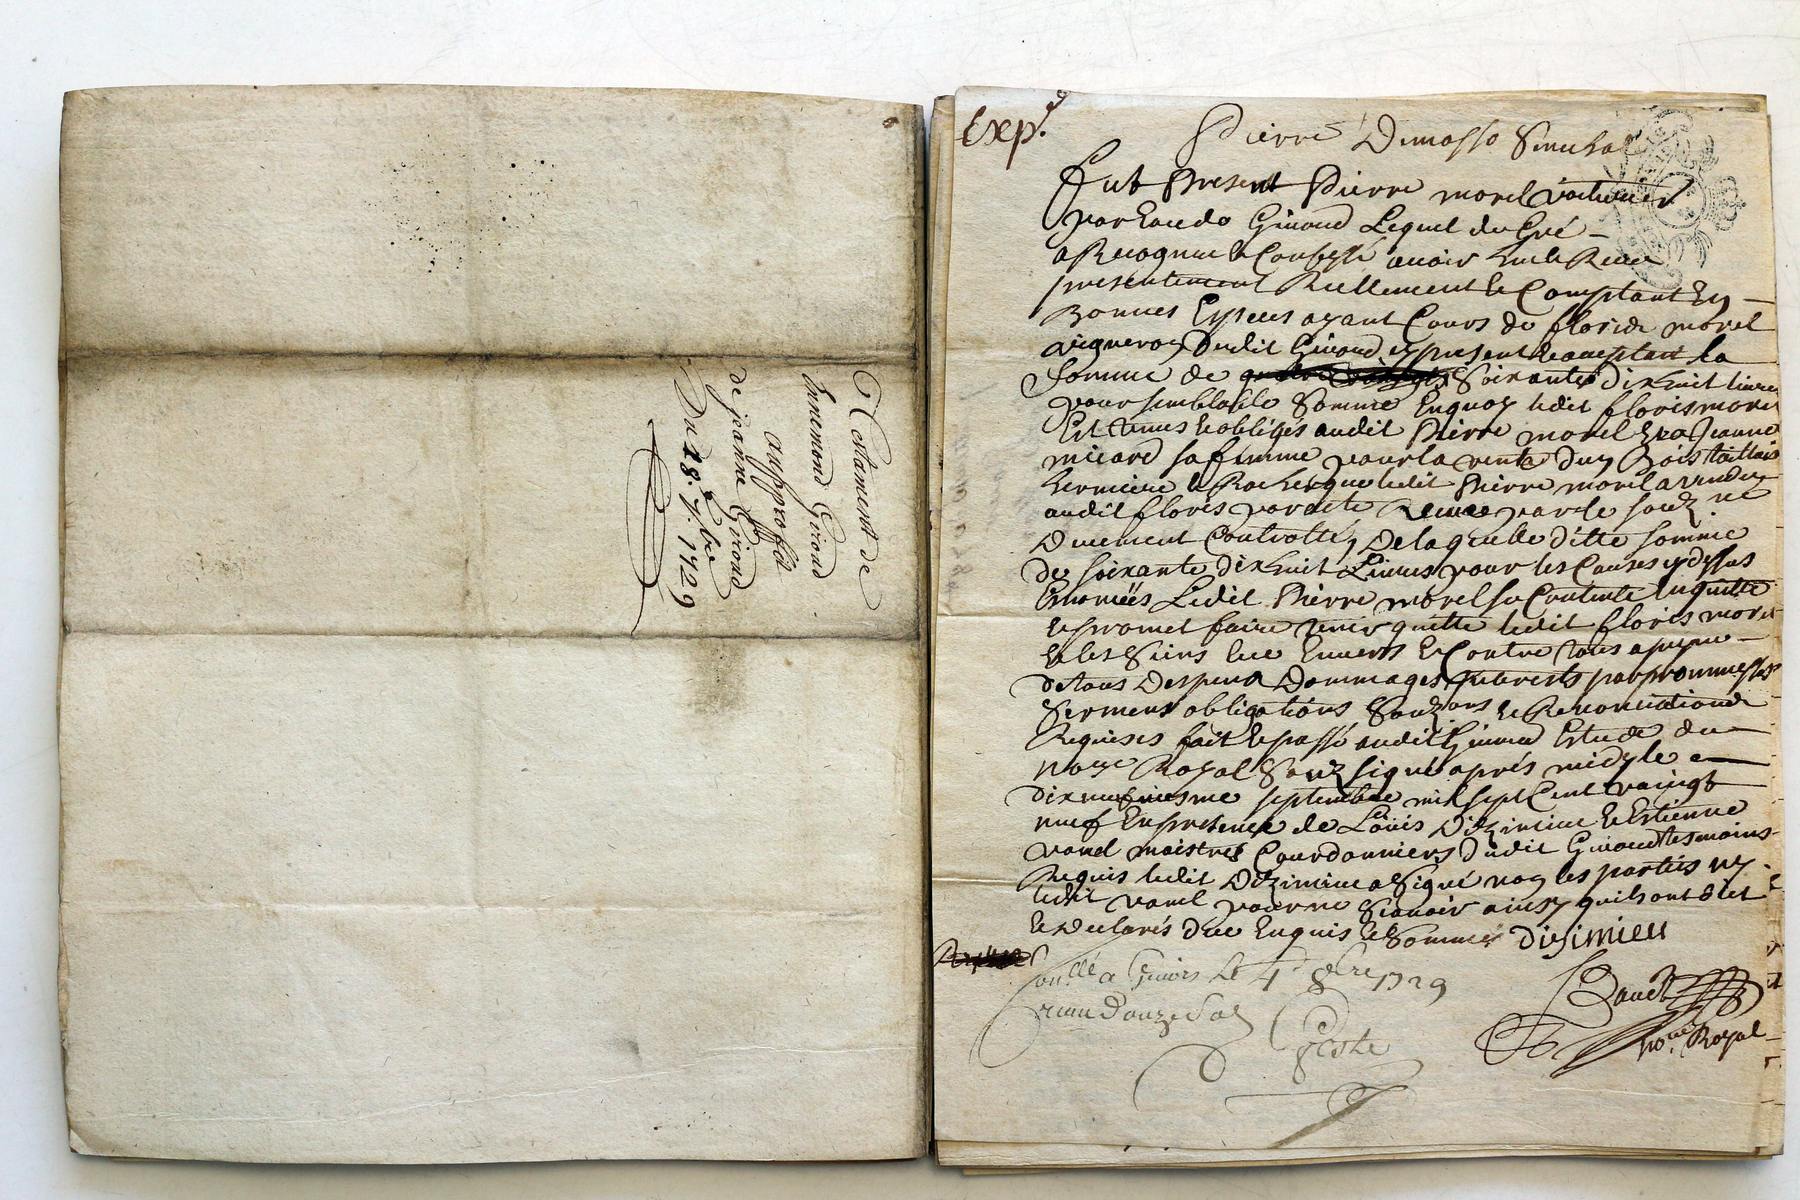 Testament de
Ennemond Girond
au pproffit
de jeanne Girond
Du 28. 7.bre 1729
Exp.d
Pierre
fut Present Pierre morel voiturier
Lequel de Gré
a Recognu & Confessé avoir Eu & Receu
presentement Reellement & Comptant En
Bonnes Especes ayant Cours de floris morel
dudit present & acceptant la
Somme de Soixante dix huit livres
pour semblable Somme Enquoy ledit floris morel
Est tenus & obligés audit Pierre morel & a Jeanne
micard sa femme pour la vente du Bois taillis
ledit Pierre morel a vendu
audit floris par acte Receu par le souz.né
Duement Controllé, De laquelle ditte somme
de soixante dix huit Livres pour les Causes cy dessus
Enoncées Ledit Pierre morel se Contente En quitte
& promet faire tenir quitte ledit floris morel
& les Siens Envers & Contre tous a peyne
de tous Despens Dommages, interests par promesses
Serment obligations & Renonciations
Requises fait & passé audit Estude du
no.re Royal Souz signé après midy le
dix neufviesme septembre mil sept Cent vaingt
neuf En presence de Louis Dizimieu & Estienne
maistres Courdonniers dudit tesmoins
Requis ledit Dizimieu a Signé non les parties ny
ledit pour ne Scavoir ainsy quils ont dit
& Declarés de ce Enquis & Sommés Disimieu
Con.llé a le 4.e 8bre 1729
Receu Douze Sols
no.re Royal